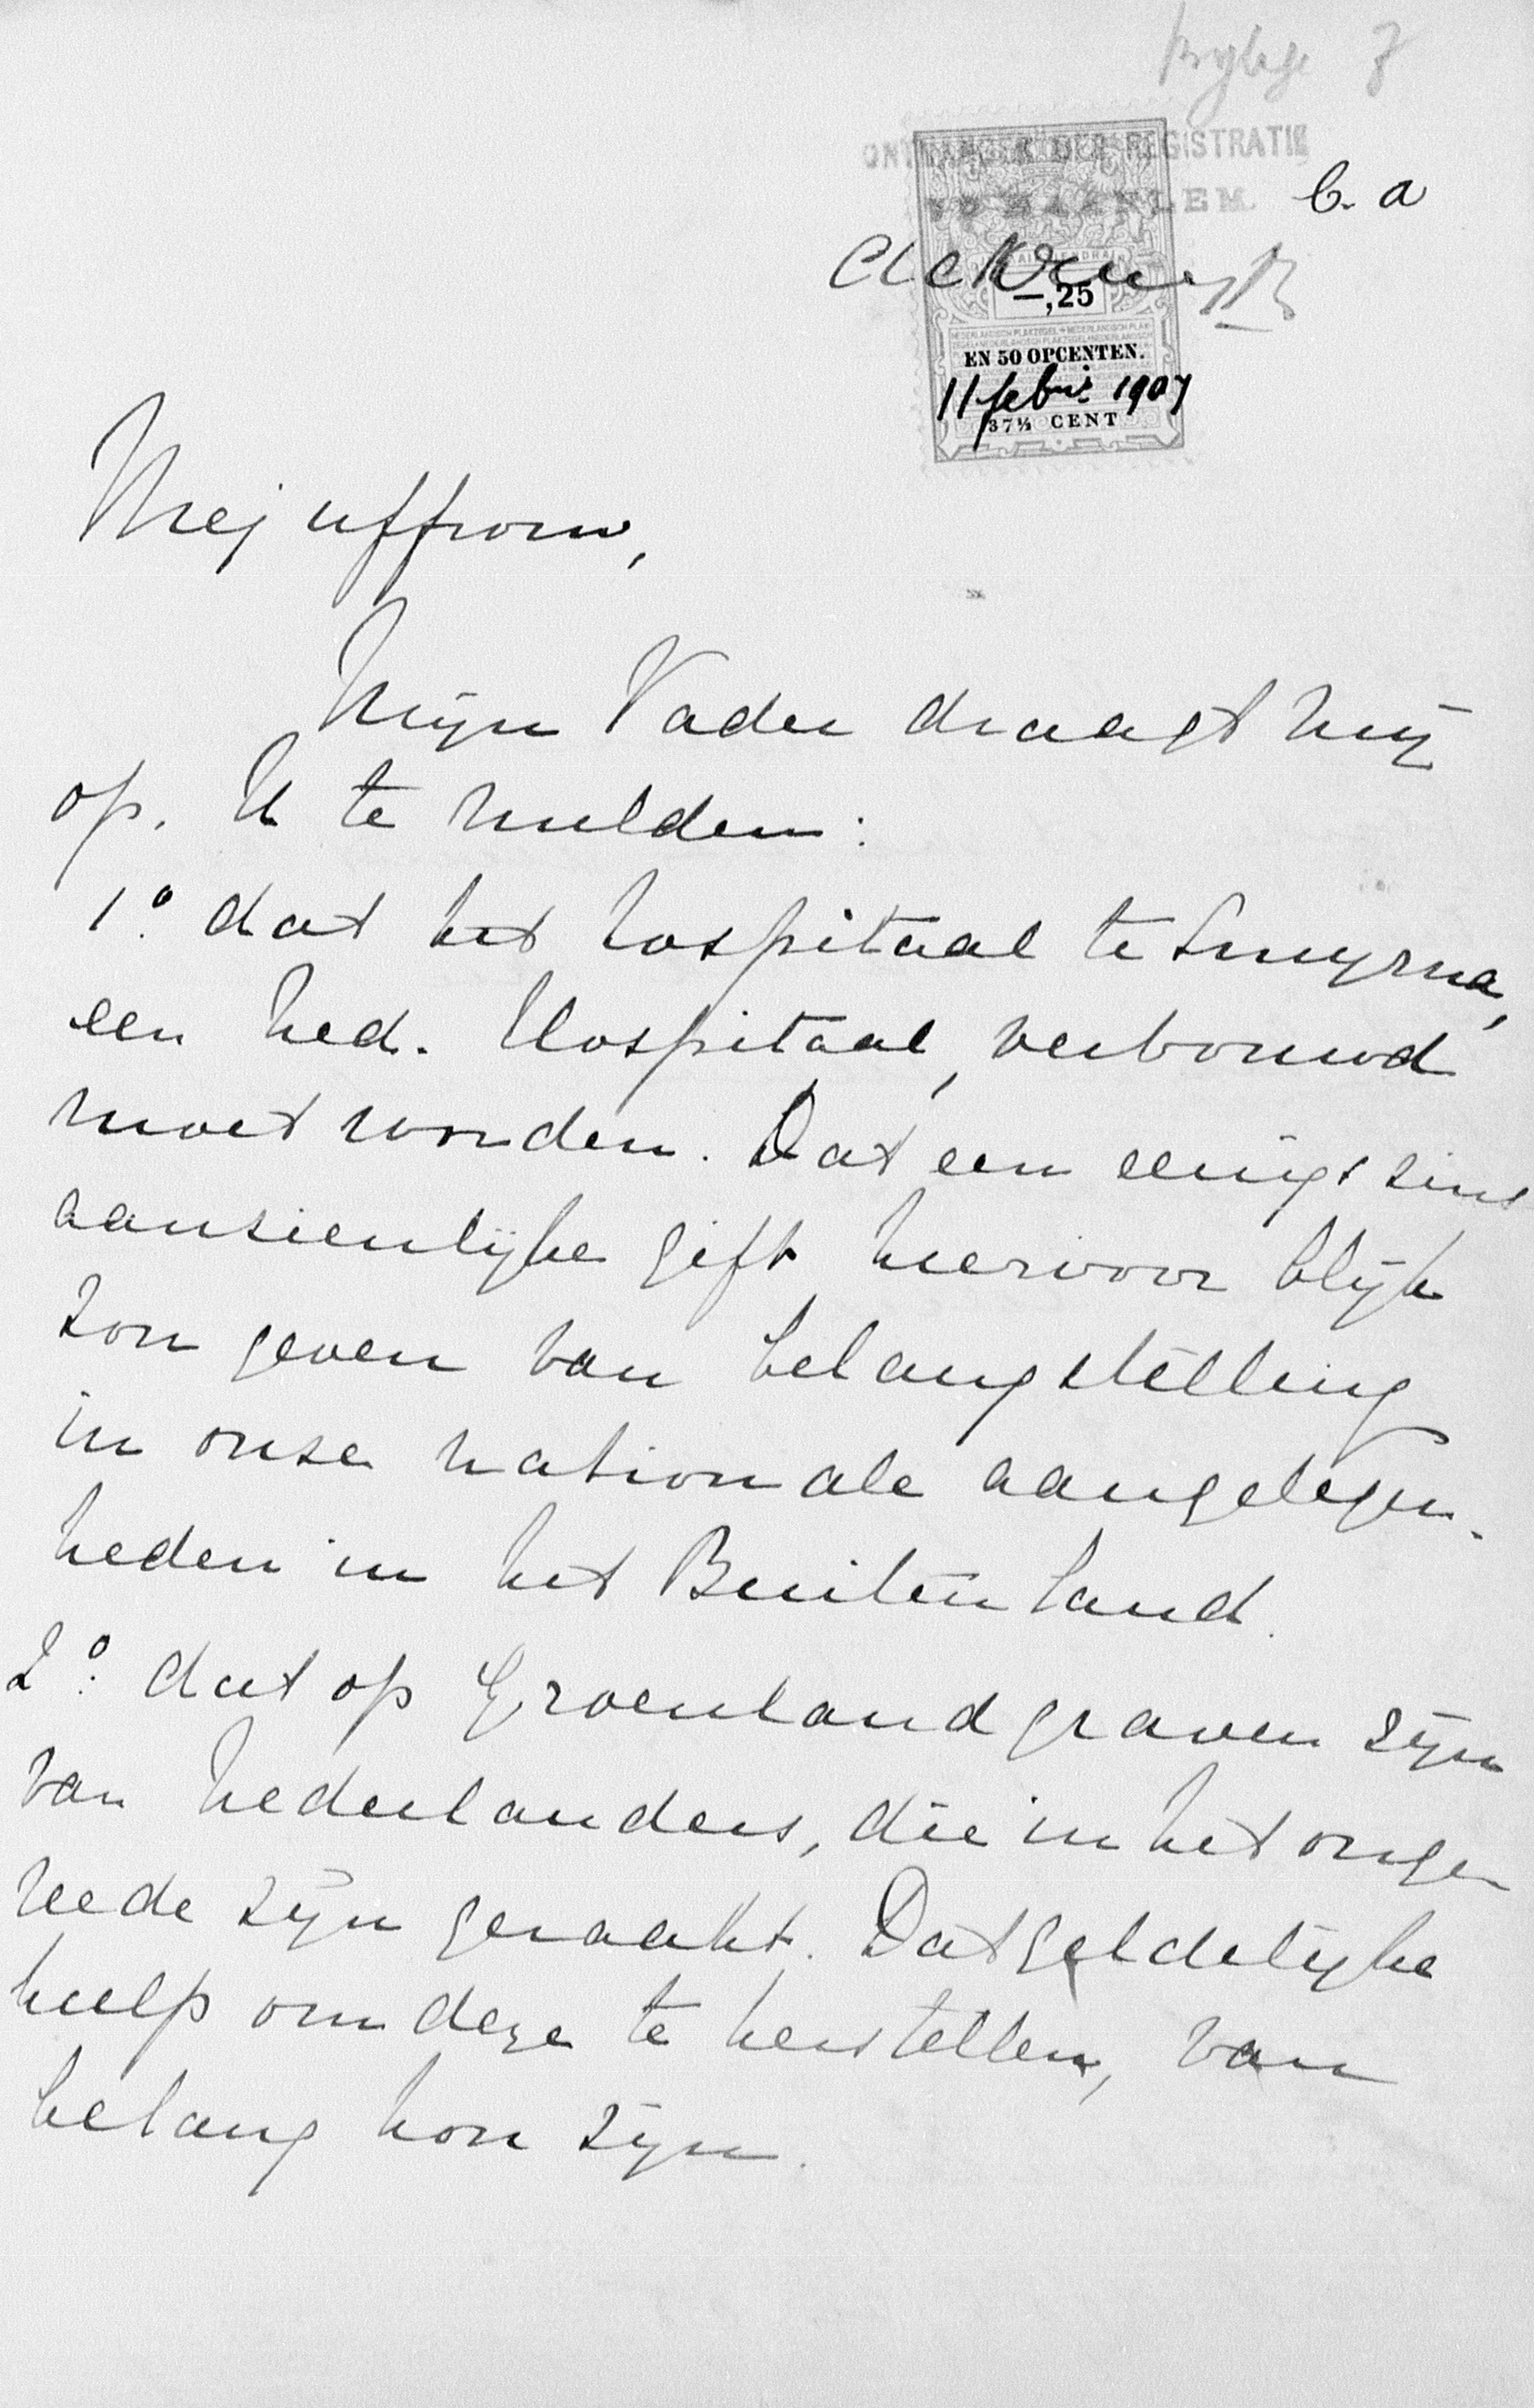 bijlage
ONTVANGER DER REGISTRATIE
TE HAARLEM.
C. a
—,25
EN 50 OPCENTEN.
11 febr: 1907
37½ CENT
Mejuffrouw,
Mijn Vader draagt mij
op, U te melden:
1o. dat het hospitaal te Smyrna,
een Ned. Hospitaal, verbouwd
moet worden. Dat een eenigszins
aanzienlijke gift hiervoor blijk
zou geven van belangstelling
in onze nationale aangelegen-
heden in het Buitenland.
2o. dat op Groenland graven zijn
van Nederlanders, die in het onge
reede zijn geraakt. Dat geldelijke
hulp om deze te herstellen, van
belang kon zijn.